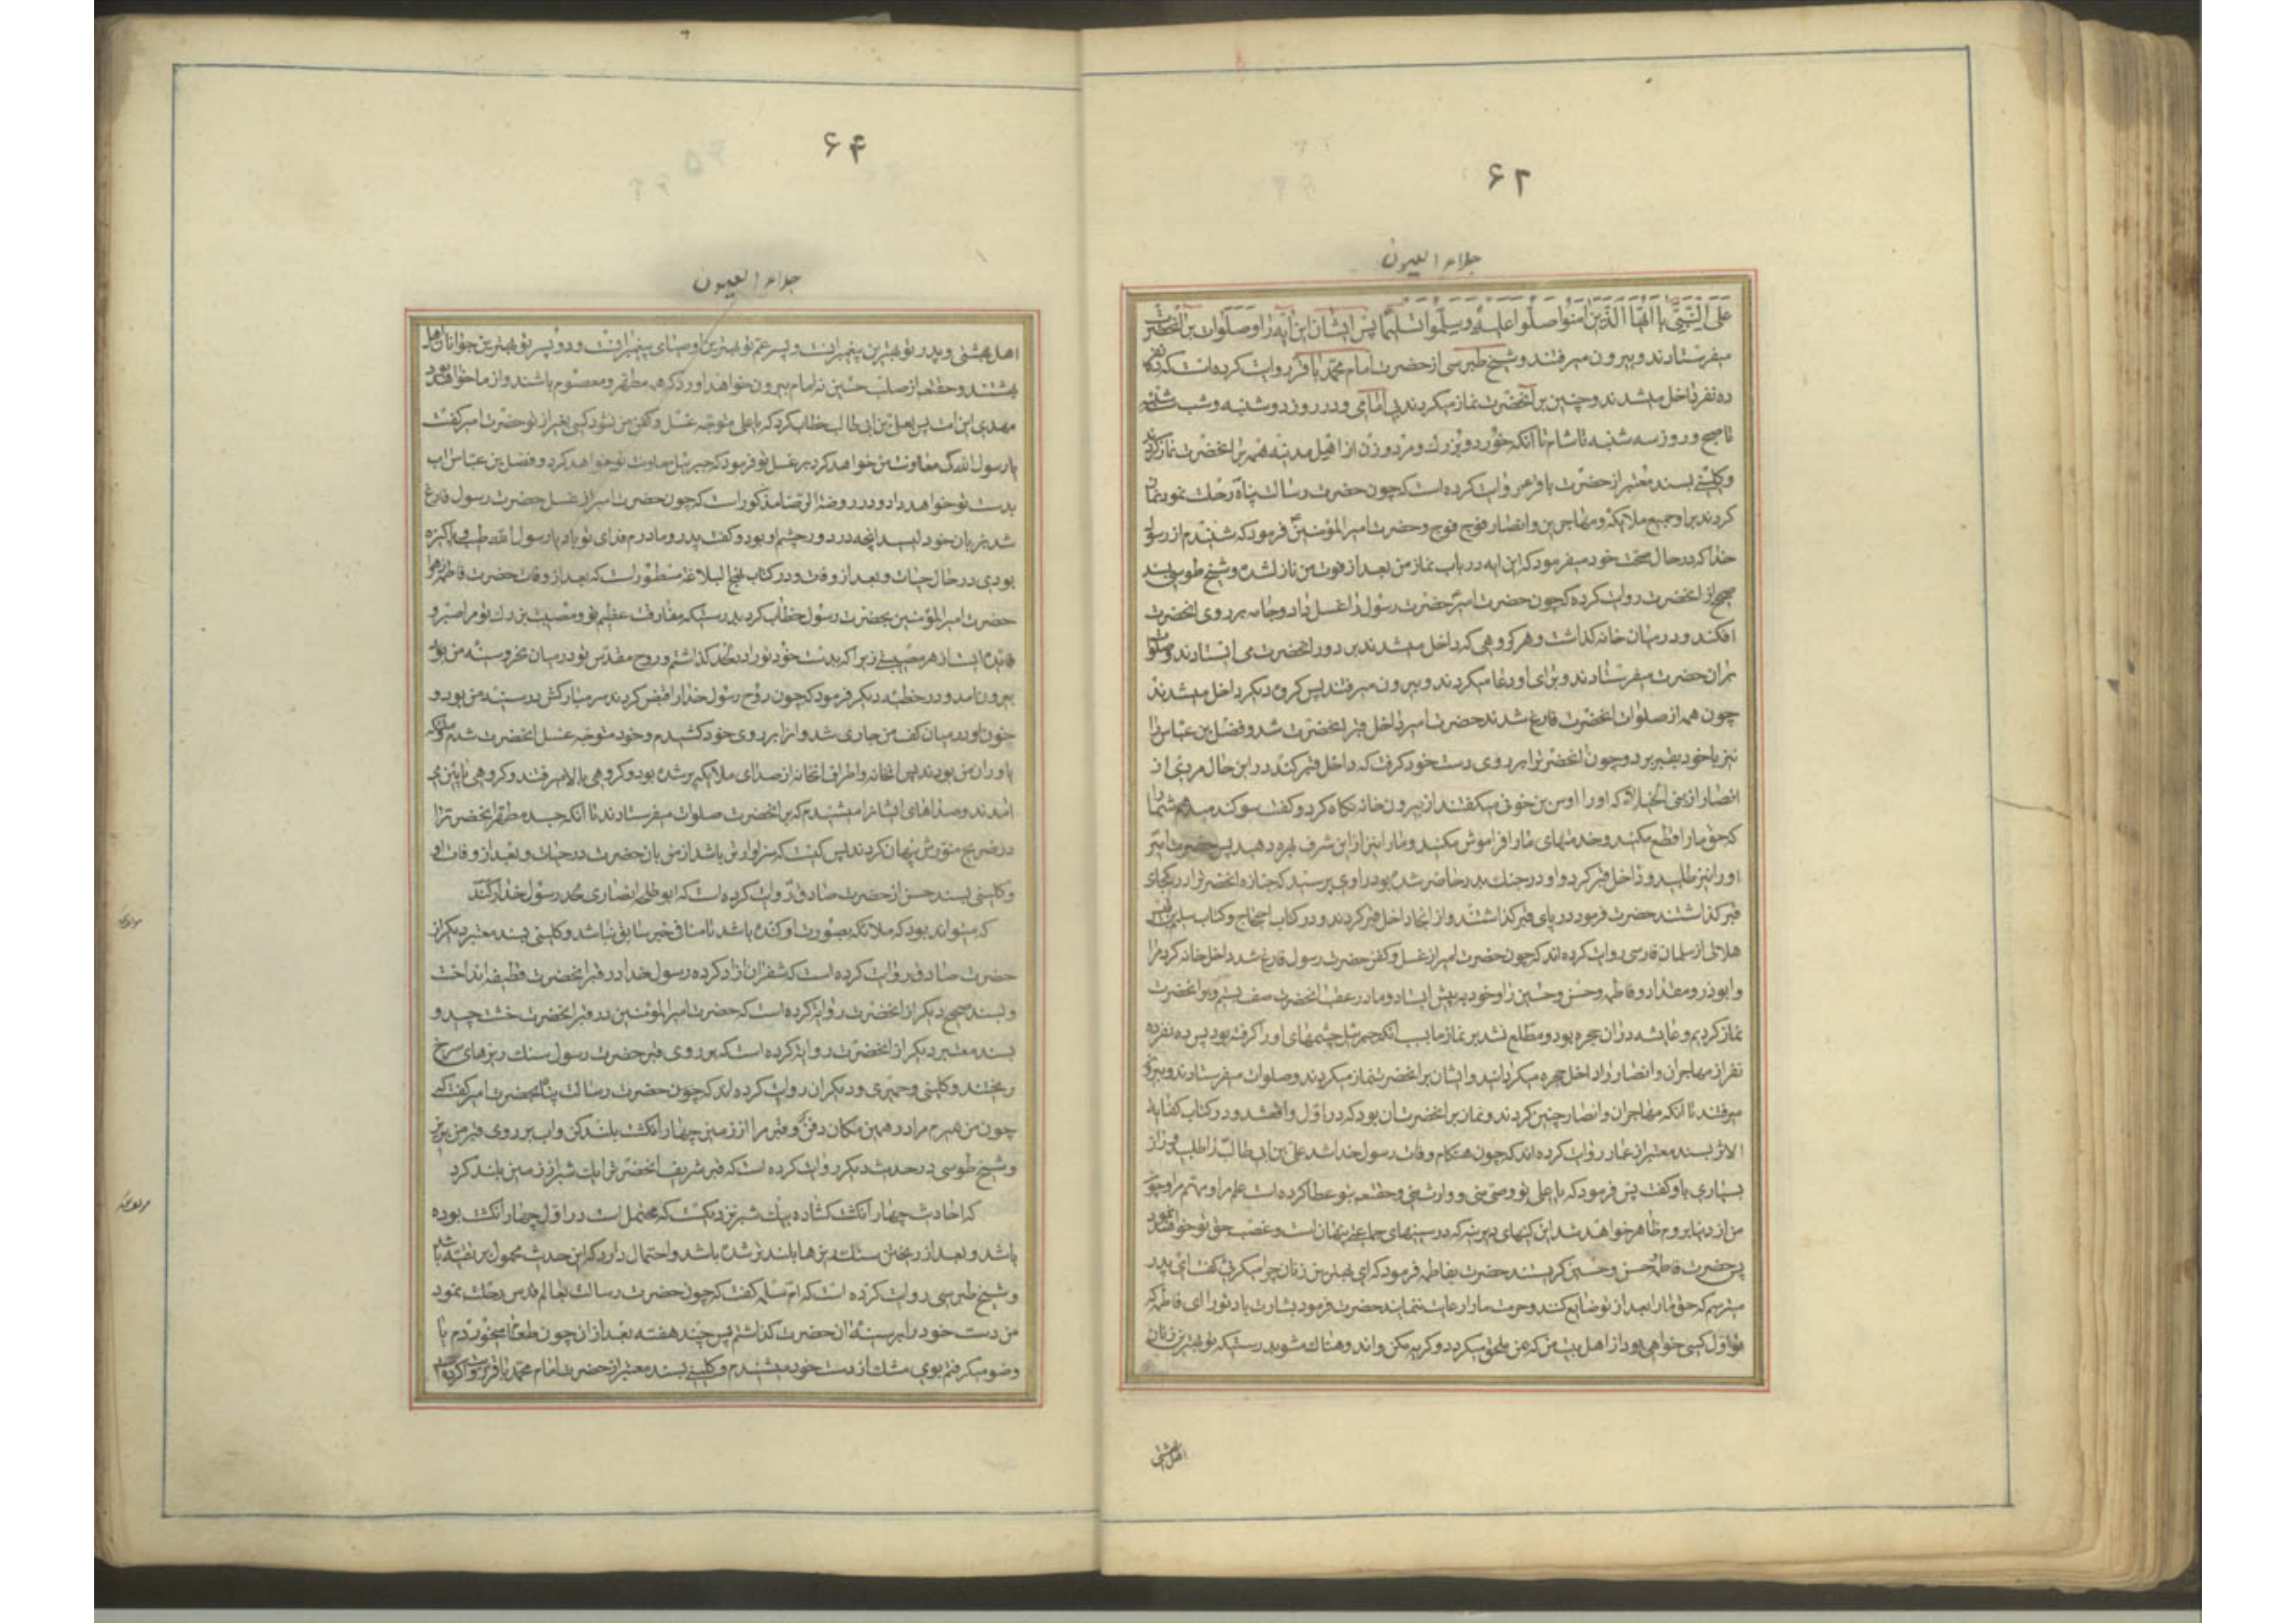 ۶۲
جلاء العیون
علی النبی یا ایها الذین امنوا صلوا علیه و سلموا تسلیما پس ایشان این ایه را و صلوات بر آنحضرت
میفرستادند و بیرون میرفتند و شیخ طبرسی از حضرت امام محمد باقر روایت کرده است که ده نفر
ده نفر داخل میشدند و چنین بر آنحضرت نماز میکردند بی امامی و در روز دوشنبه و شب سه شنبه
تا صبح و روز سه شنبه تا شام تا آنکه خورد و بزرک و مرد و زن از اهل مدینه همه بر آنحضرت نماز کردند
و کلینی بسند معتبر از حضرت باقر روایت کرده است که چون حضرت رسالت پناه رحلت نمود نماز
کردند بر او جمیع ملائکه و مهاجرین و انصار فوج فوج و حضرت امیر المؤمنین فرمود که شنیدم از رسول
خدا که در حال صحت خود میفرمود که این ایه در باب نماز من بعد از فوت من نازل شده و شیخ طوسی بسند
صحیح از آنحضرت روایت کرده که چون حضرت امیر حضرت رسول را غسل داد و جامه بر روی آنحضرت
افکند و در میان خانه کذاشت و هر کروهی که داخل میشدند بر دور آنحضرت می ایستادند و صلوات
بر ان حضرت میفرستادند و برای او دعا میکردند و بیرون میرفتند پس کروه دیکر داخل میشدند
چون همه از صلوات آنحضرت فارغ شدند حضرت امیر داخل قبر آنحضرت شد و فضل بن عباس را
نیز با خود بقبر برد و چون آنحضرترا بر روی دست خود کرفت که داخل قبر کند در این حال مردی از
انصار از بنی الخیلا که او را اوس بن خولی میکفتند از بیرون خانه نکاه کرد و کفت سوکند میدهم شما را
که حق ما را قطع مکنید و خدمتهای ما را فراموش مکنید و ما را نیز از این شرف بهره دهید پس حضرت امیر
او را نیز طلبید و داخل قبر کرد و او در جنک بدر حاضر شده بود راوی پرسید که جنازه آنحضرترا در کجای
قبر کذاشتند حضرت فرمود در پای قبر کذاشتند و از انجا داخل قبر کردند و در کتاب احتجاج و کتاب سلیم بن قیس
هلالی از سلمان فارسی روایت کرده اند که چون حضرت امیر از غسل و کفن حضرت رسول فارغ شد داخل خانه کرد مرا
و ابوذر و مقداد و فاطمه و حسن و حسین را و خود پیش ایستاد و ما در عقب آنحضرت صف بستیم و بر آنحضرت
نماز کردیم و عایشه در ان حجره بود و مطلع نشد بر نماز ما بسبب انکه جبرئیل چشمهای او را کرفته بود پس ده نفر ده
نفر از مهاجران و انصار را داخل حجره میکردانید و ایشان بر آنحضرت نماز میکردند و صلوات میفرستادند و بیرون
میرفتند تا آنکه مهاجران و انصار چنین کردند و نماز بر آنحضرت ان بود که در اول واقع شد و در کتاب کفایة
الاثر بسند معتبر از عمار روایت کرده اند که چون هنکام وفات رسول خدا شد علی بن ابی طالب را طلبید و راز
بسیاری باو کفت پس فرمود که یا علی تو وصی منی و وارث منی و حقتعالی بتو عطا کرده است علم مرا و فهم مرا و چون
من از دنیا بروم ظاهر خواهد شد این کینهای دیرینه که در سینهای جماعتی پنهان است و غصب حق تو خواهند نمود
پس حضرت فاطمه و حسن و حسین کریستند حضرت بفاطمه فرمود که ای بهترین زنان چرا میکریی کفت ای پدر
میترسم که حق ما را بعد از تو ضایع کنند و حرمت ما را رعایت ننمایند حضرت فرمود بشارت باد تو را ای فاطمه که
تو اول کسی خواهی بود از اهل بیت من که بمن ملحق میکردد و کریه مکن و اندوهناک مشو بدرستیکه تو بهترین زنان
اهل بهشتی
۶۴
جلاء العیون
اهل بهشتی و پدر تو بهترین پیغمبرانست و پسر عم تو بهترین اوصیای پیغمبرانست و دو پسر تو بهترین جوانان اهل
بهشتند و حقتعالی از صلب حسین نه امام بیرون خواهد اورد که همه مطهر و معصوم باشند و از ما خواهد بود
مهدی این امت پس بعلی بن ابی طالب خطاب کرد که یا علی متوجه غسل و کفن من نشود کسی بغیر از تو حضرت امیر کفت
یا رسول الله کی معاونت من خواهد کرد بر غسل تو فرمود که جبرئیل معاونت تو خواهد کرد و فضل بن عباس اب
بدست تو خواهد داد و در روضة الرضا مذکور است که چون حضرت امیر از غسل حضرت رسول فارغ
شد بزبان خود لیسید انچه در دور چشم او بود و کفت پدر و مادرم فدای تو باد یا رسول الله طیب و پاکیزه
بودی در حال حیات و بعد از وفات و در کتاب نهج البلاغه مسطور است که بعد از وفات حضرت فاطمه زهرا
حضرت امیر المؤمنین بحضرت رسول خطاب کرد بدرستیکه مفارقت عظیم تو و مصیبت بزرک تو مرا صبر و
فایده است از هر مصیبتی زیرا که بدست خود تو را در لحد کذاشتم و روح مقدس تو در میان نحر و سینه من بود
بیرون امد و در خطبه دیکر فرمود که چون روح رسول خدا را قبض کردند سر مبارکش در سینه من بود و
خون او در میان کف من جاری شد و انرا بر روی خود کشیدم و خود متوجه غسل آنحضرت شدم و ملائکه
یاوران من بودند پس انخانه و اطراف انخانه از صدای ملائکه پر شده بود و کروهی بالا میرفتند و کروهی پایین می
امدند و صداهای ایشانرا میشنیدم که بر آنحضرت صلوات میفرستادند تا آنکه جسد مطهر آنحضرترا
در ضریح منورش پنهان کردند پس کیست که سزاوارتر باشد از من بان حضرت در حیات و بعد از وفات او
و کلینی بسند حسن از حضرت صادق روایت کرده است که ابو طلحه انصاری لحد رسول خدا را کند
که میتواند بود که ملائکه بصورت او کنده باشد تا منافی خبر سابق نباشد و کلینی بسند معتبر دیکر از
حضرت صادق روایت کرده است که شقران ازاد کرده رسول خدا در قبر آنحضرت قطیفه انداخت
و بسند صحیح دیکر از آنحضرت روایت کرده است که حضرت امیر المؤمنین در قبر آنحضرت خشت چید و
بسند معتبر دیکر از آنحضرت روایت کرده است که بر روی قبر حضرت رسول سنک ریزهای سرخ
ریختند و کلینی و حمیری و دیکران روایت کرده اند که چون حضرت رسالت پناه بحضرت امیر کفت که
چون من بمیرم مرا در همین مکان دفن کن و قبر مرا از زمین چهار انکشت بلند کن و اب بر روی قبر من بریز
و شیخ طوسی در حدیث دیکر روایت کرده است که قبر شریف آنحضرترا یک شبر از زمین بلند کرد
که احادیث چهار انکشت کشاده بیک شبر نزدیکست که محتمل است در اول چهار انکشت بوده
باشد و بعد از ریختن سنک ریزها بلندتر شده باشد و احتمال دارد که این حدیث محمول بر تقیه باشد
و شیخ طبرسی روایت کرده است که ام سلمه کفت که چون حضرت رسالت بعالم قدس رحلت نمود
من دست خود را بر سینه ان حضرت کذاشتم پس چند هفته بعد از ان چون طعام میخوردم یا
وضو میکرفتم بوی مشک از دست خود میشنیدم و کلینی بسند معتبر از حضرت امام محمد باقر روایت کرده